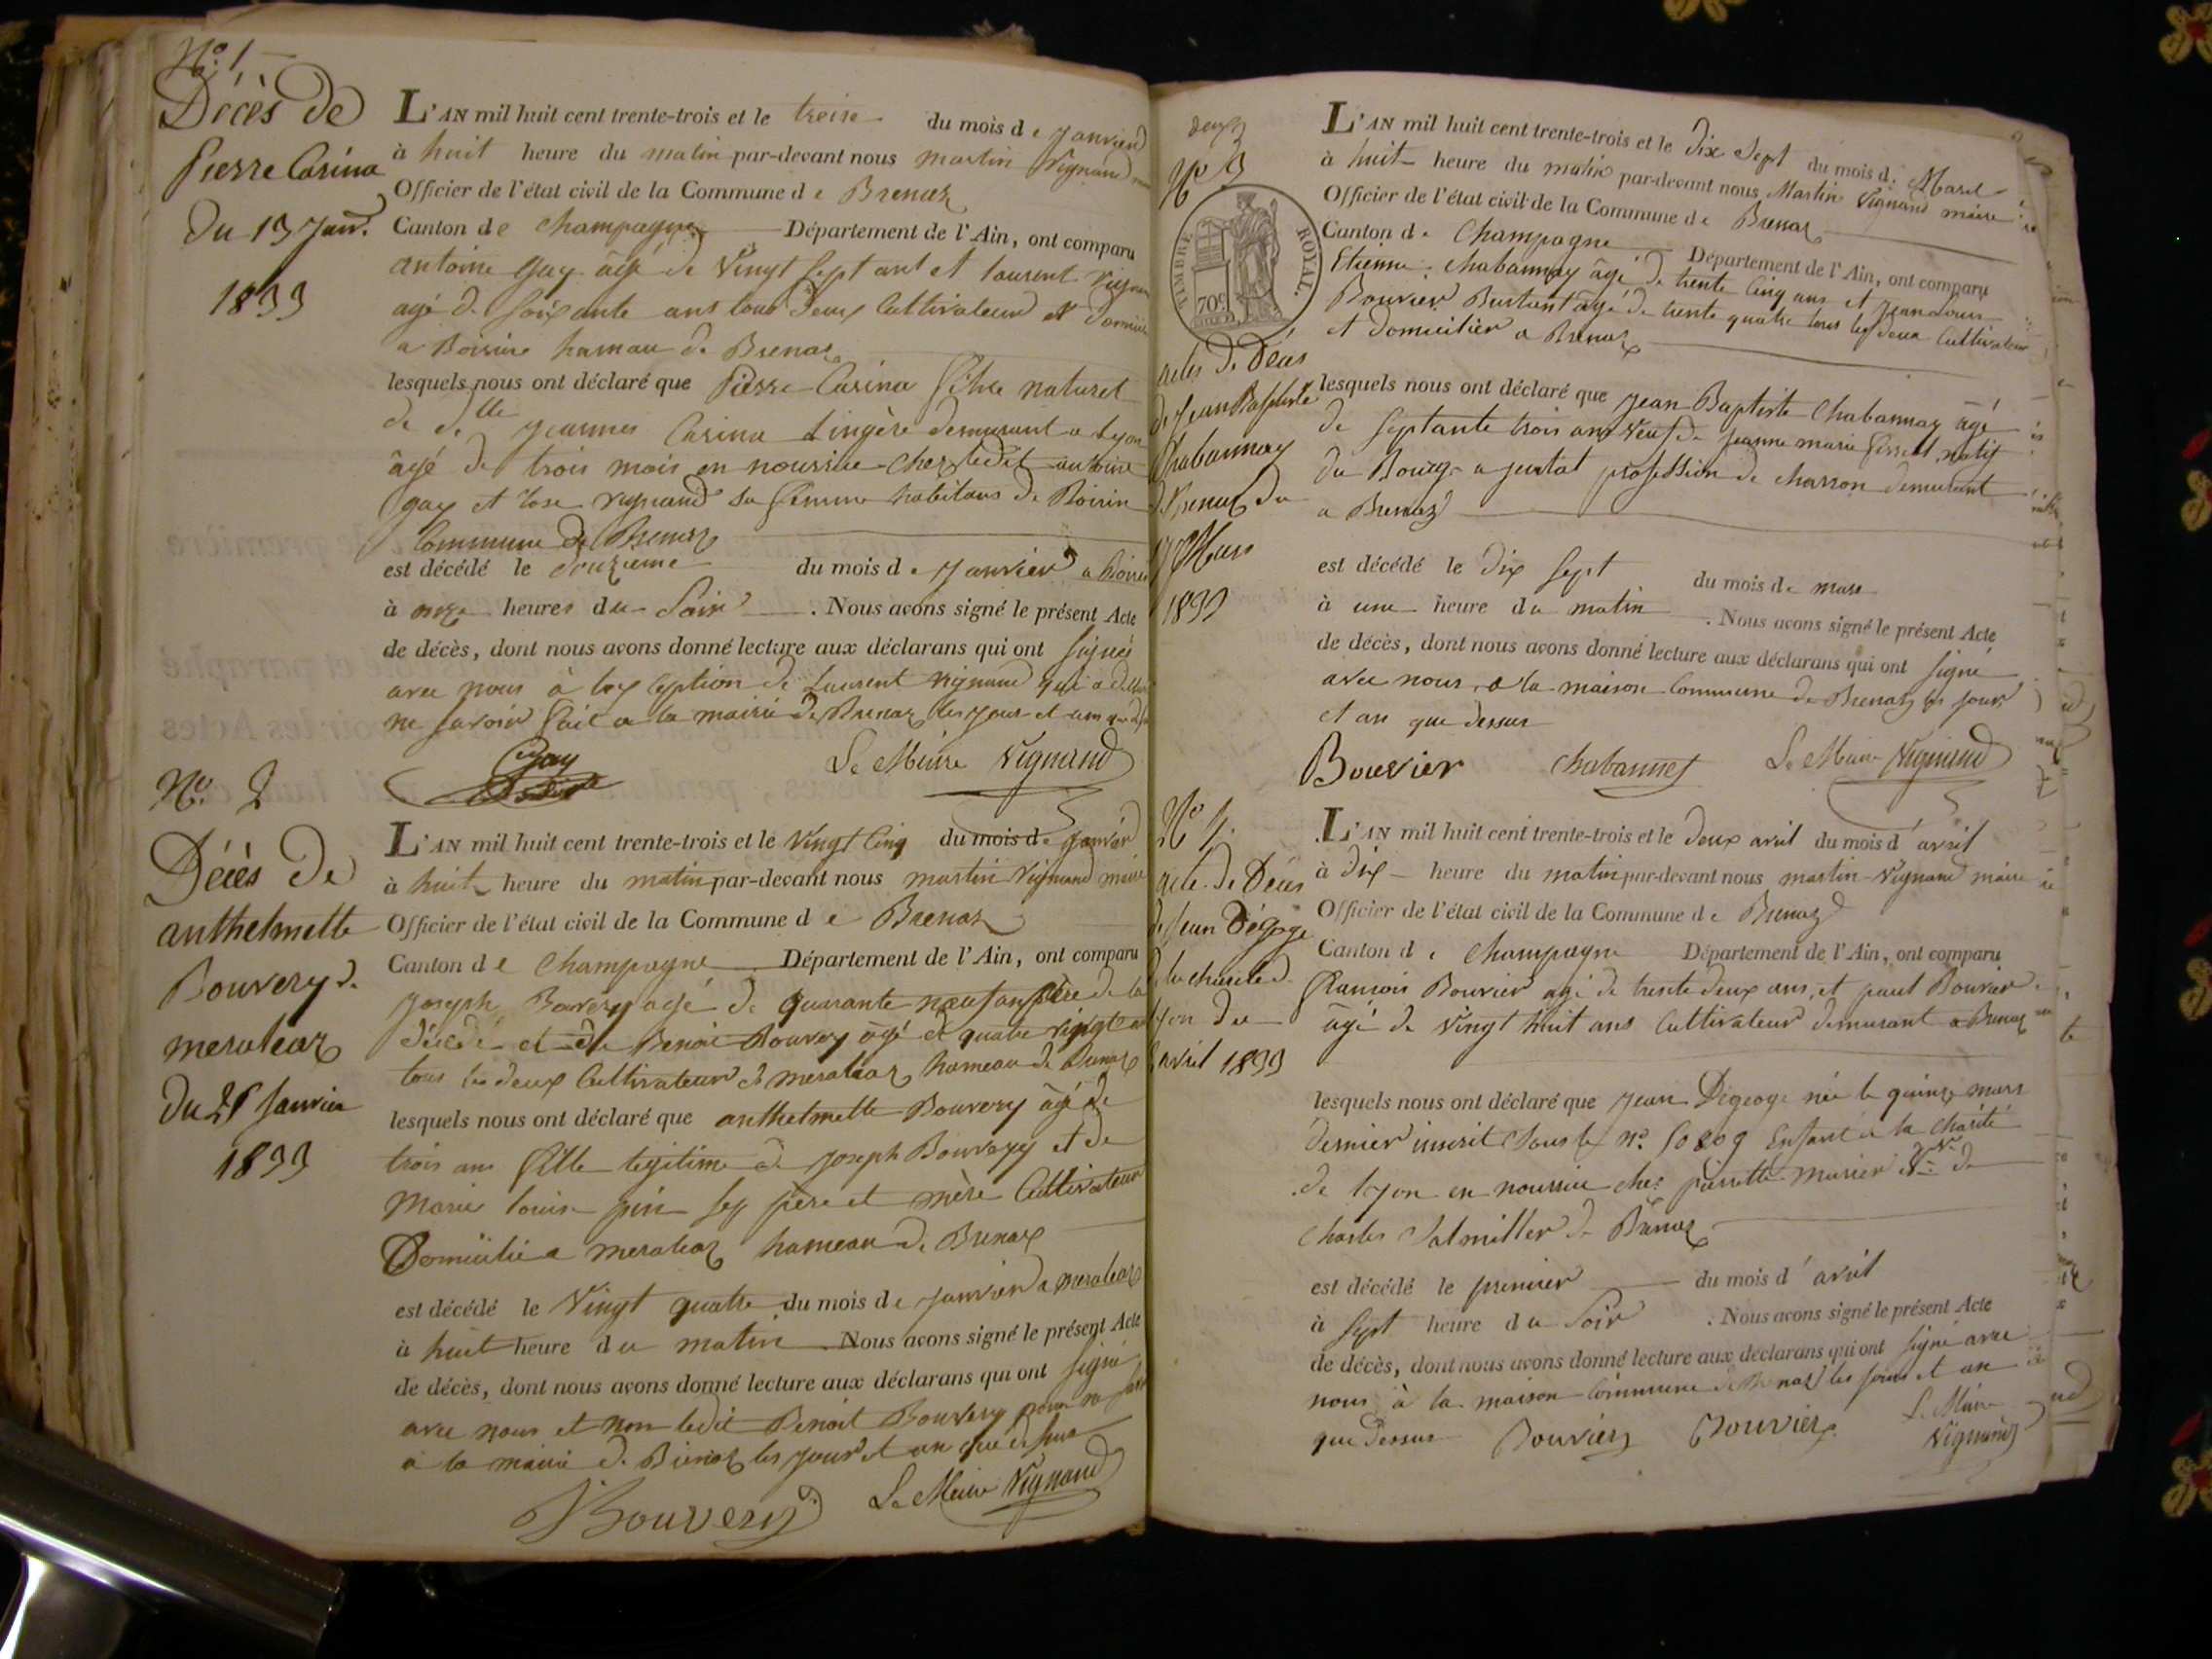 N.º 1
Décès de
Pierre Carina
du 13 Janr.
1833
L'AN mil huit cent trente-trois et le treise du mois de Janvier
à huit heure du matin par-devant nous martin Vignand
Officier de l'état civil de la Commune de Brenaz
Canton de Champagne Département de l'Ain, ont comparu
antoine gay agé de Vingt Sept ans et laurent
agé de Soixante ans tous deux Cultivateurs et
a hamau de Brenaz
lesquels nous ont déclaré que Pierre Carina naturel
de dlle jeannes Carina Lingère demeurant a Lyon
âgé de trois mois en nourrice chez ledit antoine
gay et rose vignand sa femme habitans de
Commune de Brenaz
est décédé le douzieme du mois de Janvier a
à onze heures du Soir. Nous avons signé le présent Acte
de décès, dont nous avons donné lecture aux déclarans qui ont signés
avec nous à de laurent vignand qui a
ne savoir fait a la mairie de Brenaz les jour et an
Gay Le Maire Vignand
N.º 2
Décès de
anthelmette
Bouvery de
meraleaz
du 25 Janvier
1833
L'AN mil huit cent trente-trois et le Vingt Cinq du mois de janvier
à huit heure du matin par-devant nous martin Vignand maire
Officier de l'état civil de la Commune de Brenaz
Canton de Champagne Département de l'Ain, ont comparu
Joseph Bouvery agé de quarante neuf ans père de la
décédé et de Benoit Bouvery âgé de quatre vingt
tous les deux Cultivateur de meraleaz hameau de Brenaz
lesquels nous ont déclaré que anthelmette Bouvery âgé de
trois ans fille legitime de Joseph Bouvery et de
Marie louise père et mère Cultivateur
Domicilié a meraleaz hameau de Brenaz
est décédé le Vingt quatre du mois de janvier a meraleaz
à huit heure du matin Nous avons signé le présent Acte
de décès, dont nous avons donné lecture aux déclarans qui ont signé
avec nous et non ledit Benoit Bouvery pour ne
a la mairie de Brenaz les jour et an que dessus
Bouvery Le Maire Vignand
N.º 3
TIMBRE ROYAL.
70.c
actes de Décès
de Jean Baptiste
Chabannay
de Brenaz du
17 Mars
1833
L'AN mil huit cent trente-trois et le dix Sept du mois de Mars
à huit heure du matin par-devant nous Martin Vignand maire
Officier de l'état civil de la Commune de Brenaz
Canton de Champagne Département de l'Ain, ont comparu
Etienne Chabannay âgé de trente Cinq ans et Jean Louis
Bouvier âgé de trente quatre tous les deux Cultivateur
et domicilier a Brenaz
lesquels nous ont déclaré que jean Baptiste Chabannay âgé
de septante trois ans veuf de jeanne marie natif
du Bourg profession de charron demeurant
a Brenaz
est décédé le dix Sept du mois de mars
à une heure du matin. Nous avons signé le présent Acte
de décès, dont nous avons donné lecture aux déclarans qui ont signé
avec nous, a la maison Commune de Brenaz les jour
et an que dessus
Bouvier Chabannet Le Maire Vignand
N.º 4.
acte de Décès
de Jean Dégoge
de la charité de
lyon du
avril 1833
L'AN mil huit cent trente-trois et le deux avril du mois d'avril
à dix heure du matin par-devant nous martin Vignand maire
Officier de l'état civil de la Commune de Brenaz
Canton de Champagne Département de l'Ain, ont comparu
françois Bouvier agé de trente deux ans, et paul Bouvier
âgé de vingt huit ans Cultivateur demeurant a Brenaz
lesquels nous ont déclaré que jean née le quinze mars
dernier inscrit sous le nº. 50809 Enfant de la charité
de lyon en nourrice chez de
Charles de Brenaz
est décédé le premier du mois d'avril
à sept heure du Soir. Nous avons signé le présent Acte
de décès, dont nous avons donné lecture aux déclarans qui ont signé avec
nous à la maison Commune de Brenaz les jour et an
que dessus Bouvier Bouvier Le Maire
Vignand